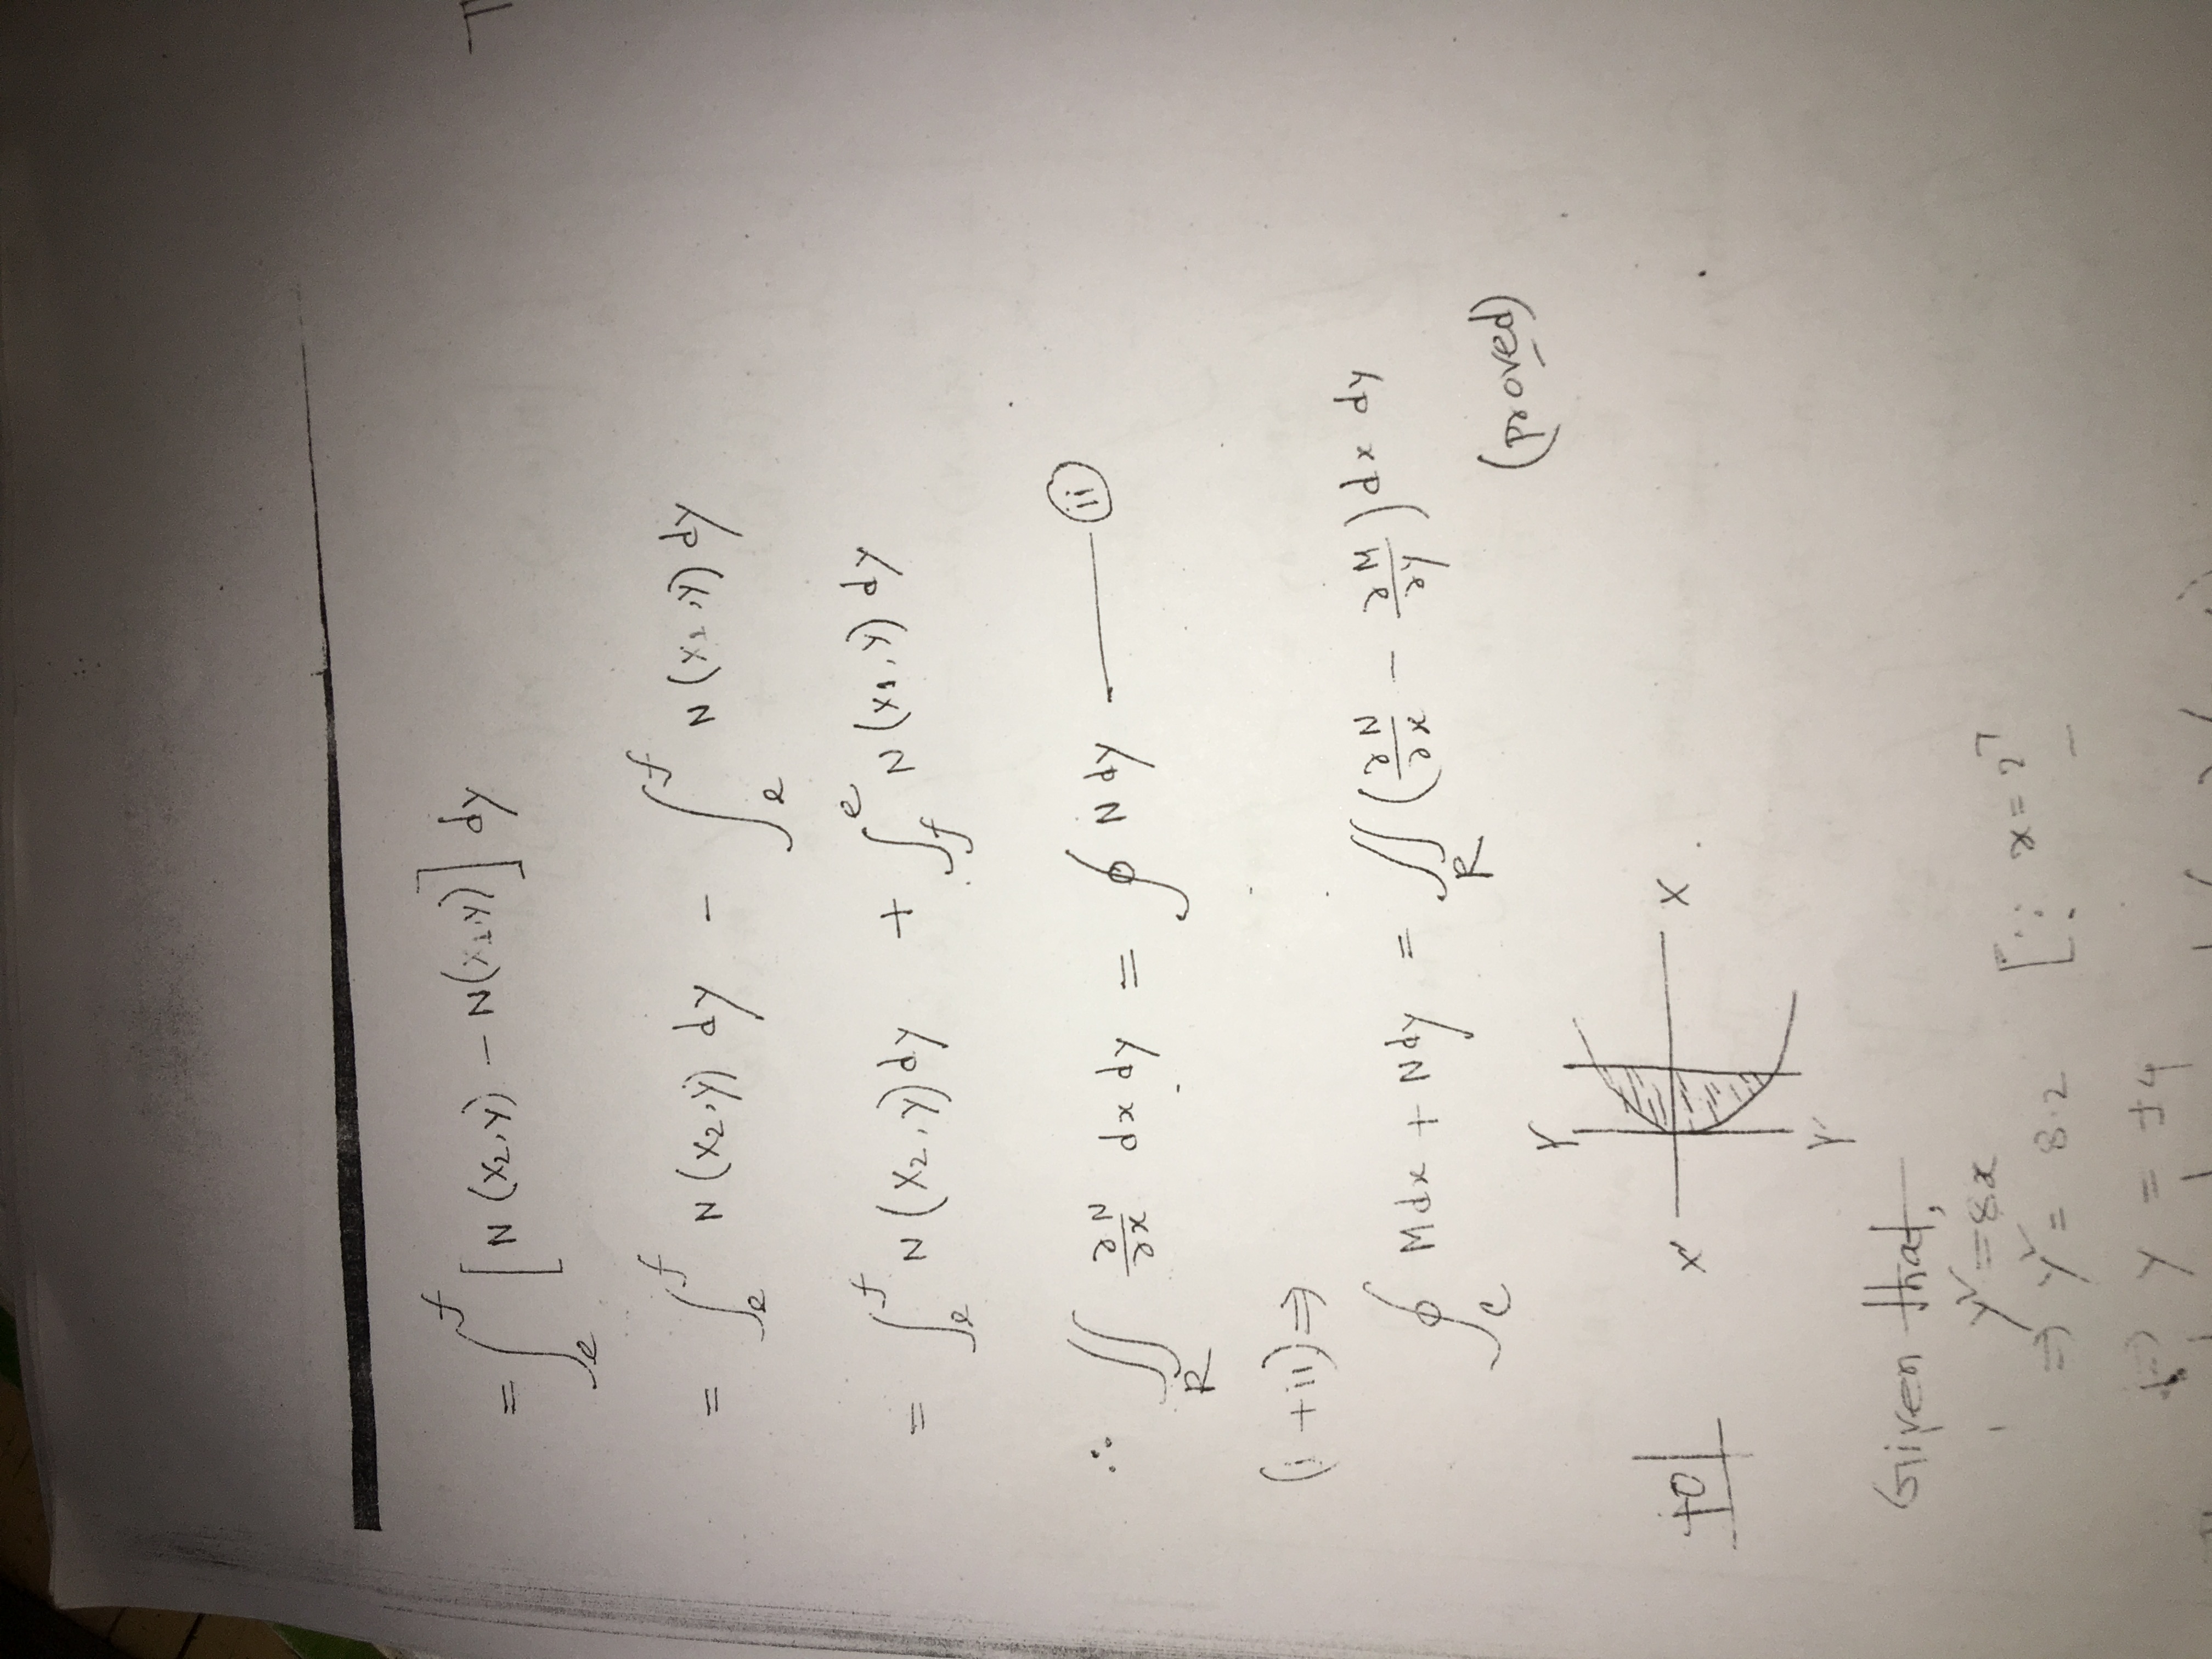 = ∫_e^f [N(x₂,y) − N(x₁,y)] dy
= ∫_e^f N(x₂,y) dy − ∫_e^f N(x₁,y) dy
= ∫_e^f N(x₂,y) dy + ∫_f^e N(x₁,y) dy
∴ ∬_R ∂N/∂x dx dy = ∮ N dy —— (ii)
(i + ii) ⇒
∮_c M dx + N dy = ∬_R (∂N/∂x − ∂M/∂y) dx dy
(proved)
Y
10
X' X
Y'
Given that,
y² = 8x
⇒ y² = 8.2 [∵ x = 2]
⇒ y = ±4